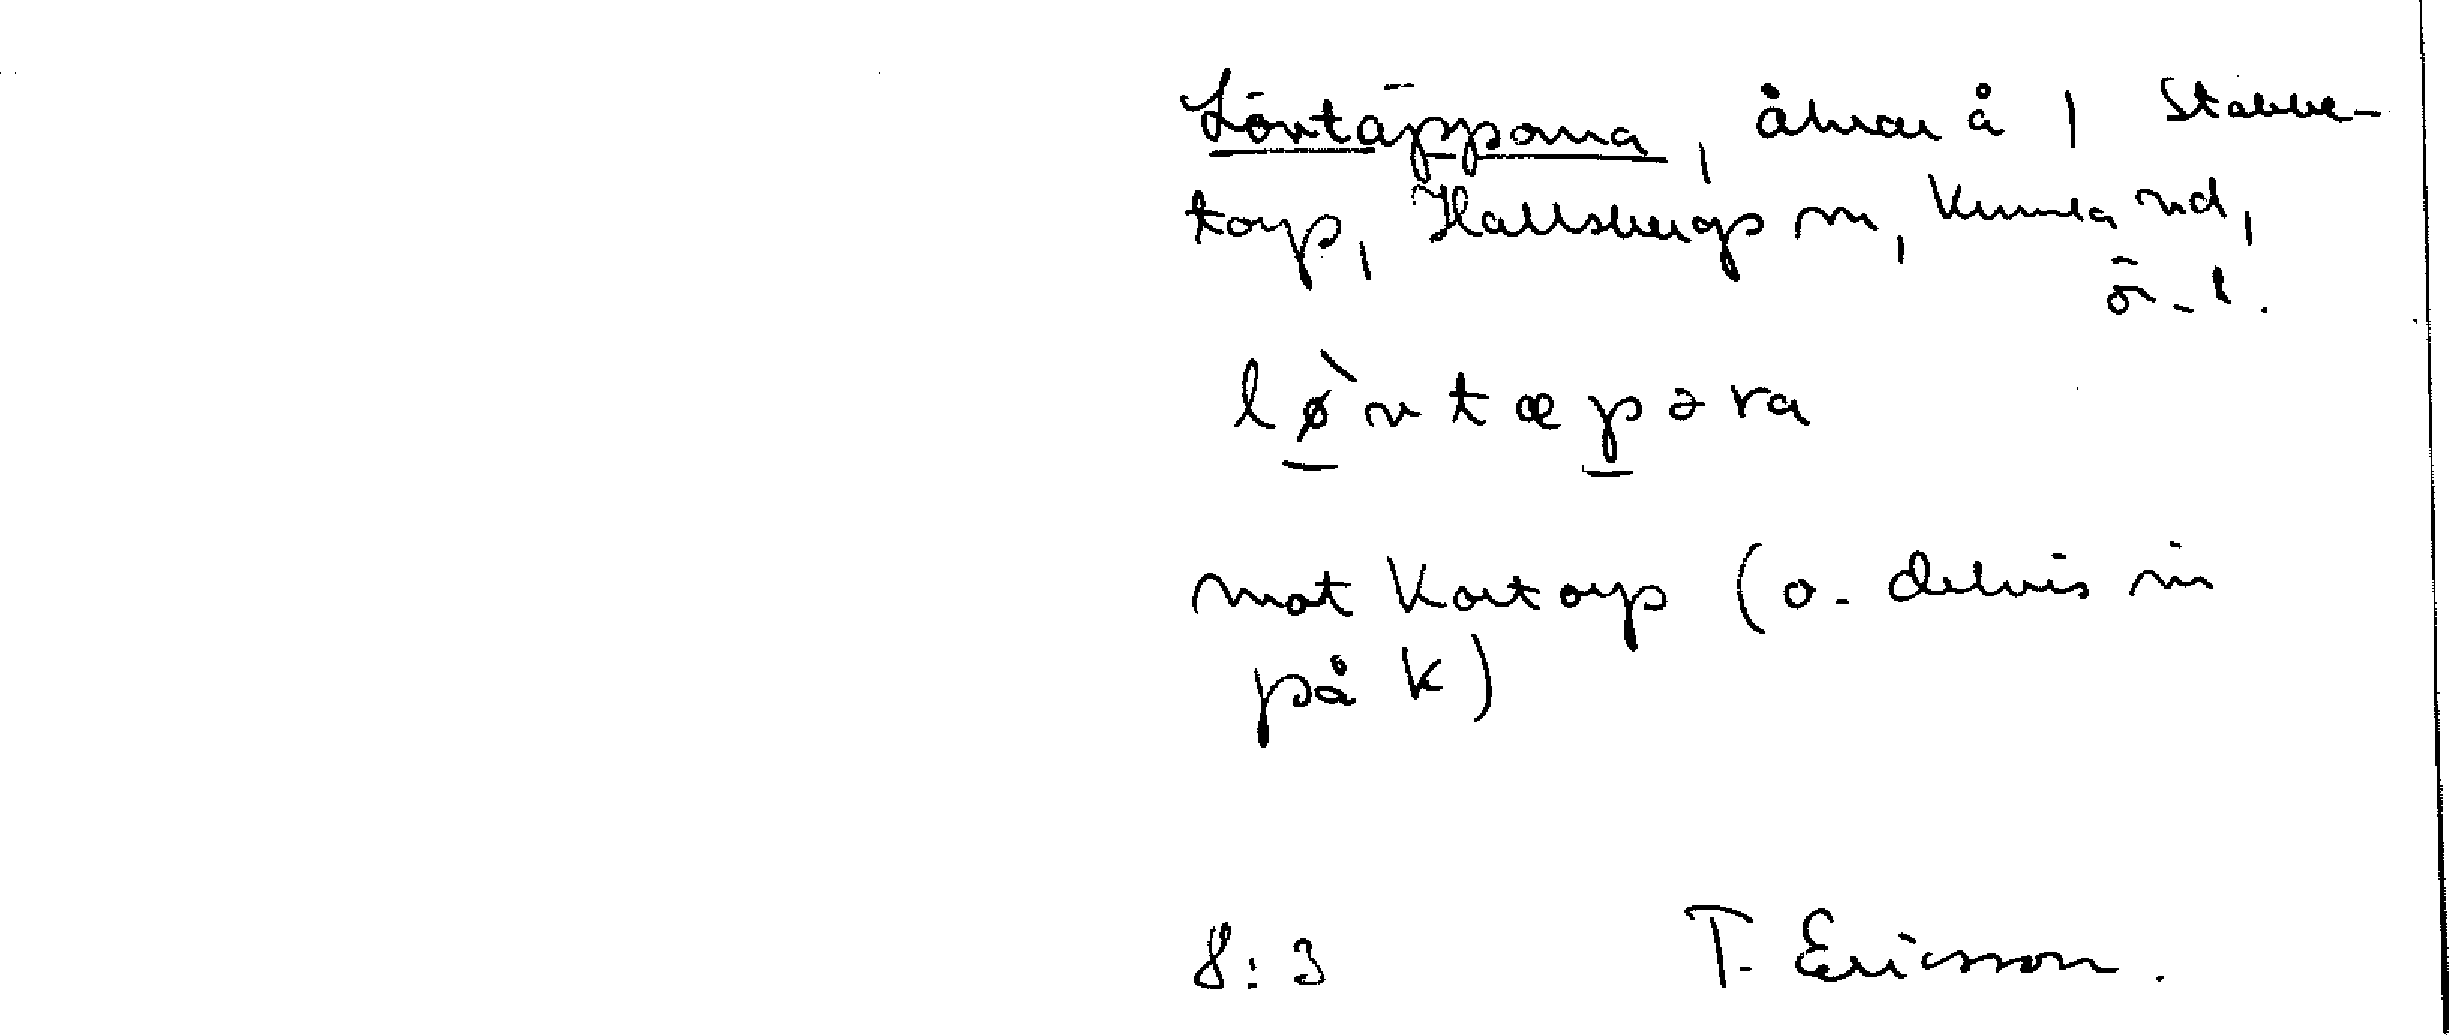 Lövtäpporna, åkrar å 1 Stabbe-
torp, Hallsbergs sn, Kumla hd,
ö-l.
lø̀vtæpəra
mot Kartorp (o. delvis in
på K)
8:3 T. Ericsson.